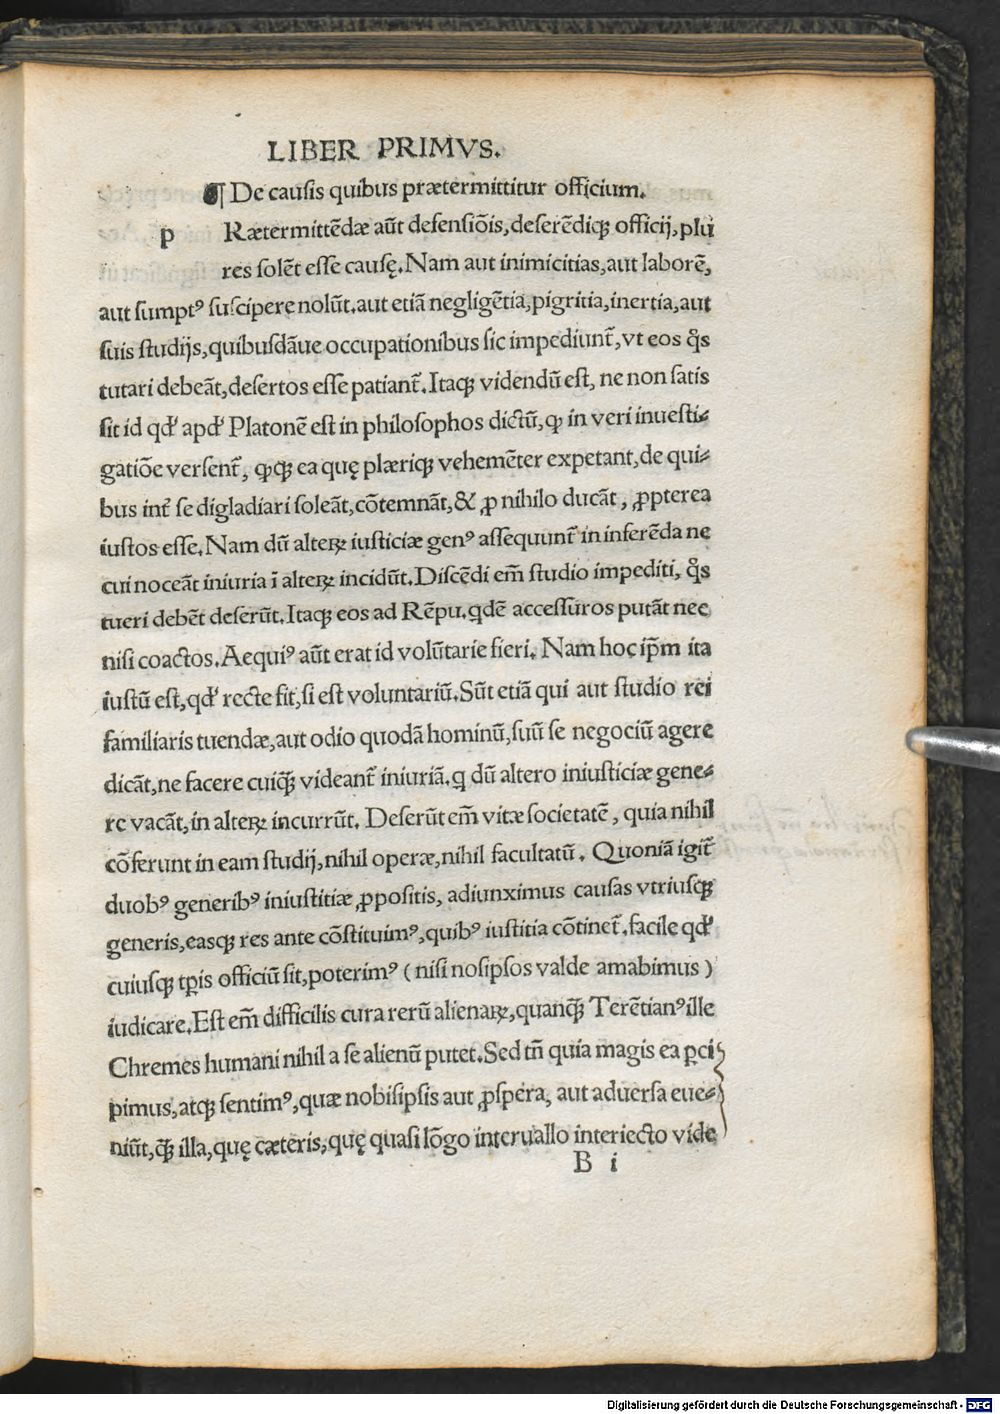 LIBER PRIMVS.
¶ De causis quibus prætermittitur officium.
p Rætermittēdæ aūt defensiōis, deserēdiqꝫ officij, plu
res solēt esse causę. Nam aut inimicitias, aut laborē,
aut sumptꝰ suscipere nolūt. aut etiā negligētia, pigritia, inertia, aut
suis studijs, quibusdāue occupationibus sic impediunt̃, vt eos q̃s
tutari debeāt, desertos esse patiant̃. Itaqꝫ videndū est, ne non satis
sit id qđ apđ Platonē est in philosophos dictū, ꝙ in veri inuesti⸗
gatiōe versent̃, ꝙqꝫ ea quę plæriqꝫ vehemēter expetant, de qui⸗
bus int̃ se digladiari soleāt, cōtemnāt, & ꝓ nihilo ducāt, ꝓpterea
iustos esse. Nam dū alteꝝ iusticiæ genꝰ assequunt̃ in inferēda ne
cui noceāt iniuria ī alteꝝ incidūt. Discēdi em̄ studio impediti, q̃s
tueri debēt deserūt. Itaqꝫ eos ad Rēpu. qdē accessuros putāt nec
nisi coactos. Aequiꝰ aūt erat id volūtarie fieri. Nam hoc ip̄m ita
iustū est, qđ recte fit, si est voluntariū. Sūt etiā qui aut studio rei
familiaris tuendæ, aut odio quodā hominū, suū se negociū agere
dicāt, ne facere cuiꝗ̃ videant̃ iniuriā. q dū altero iniusticiæ gene⸗
re vacāt, in alteꝝ incurrūt. Deserūt em̄ vitæ societatē, quia nihil
cōferunt in eam studij, nihil operæ, nihil facultatū. Quoniā igit̃
duobꝰ generibꝰ iniustitiæ ꝓpositis, adiunximus causas vtriusqꝫ
generis, easqꝫ res ante cōstituimꝰ, quibꝰ iustitia cōtinet̃. facile qđ
cuiusqꝫ tp̄is officiū sit, poterimꝰ (nisi nosipsos valde amabimus)
iudicare. Est em̄ difficilis cura rerū alienaꝝ, quanꝗ̃ Terētianꝰ ille
Chremes humani nihil a se alienū putet. Sed tñ quia magis ea ꝑci
pimus, atqꝫ sentimꝰ, quæ nobisipsis aut ꝓspera, aut aduersa eue⸗
niūt, ꝗ̃ illa, quę cæteris, quę quasi lōgo interuallo interiecto vide
B i
Digitalisierung gefördert durch die Deutsche Forschungsgemeinschaft - DFG